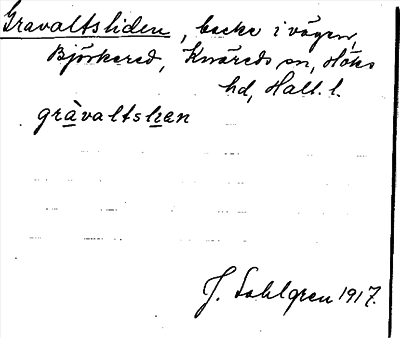 Gravaltsliden, backe i vägen,
Björkered, Knäreds sn, Höks
hd, Hall. l.
gràvaltslıɛn
J. Sahlgren 1917.